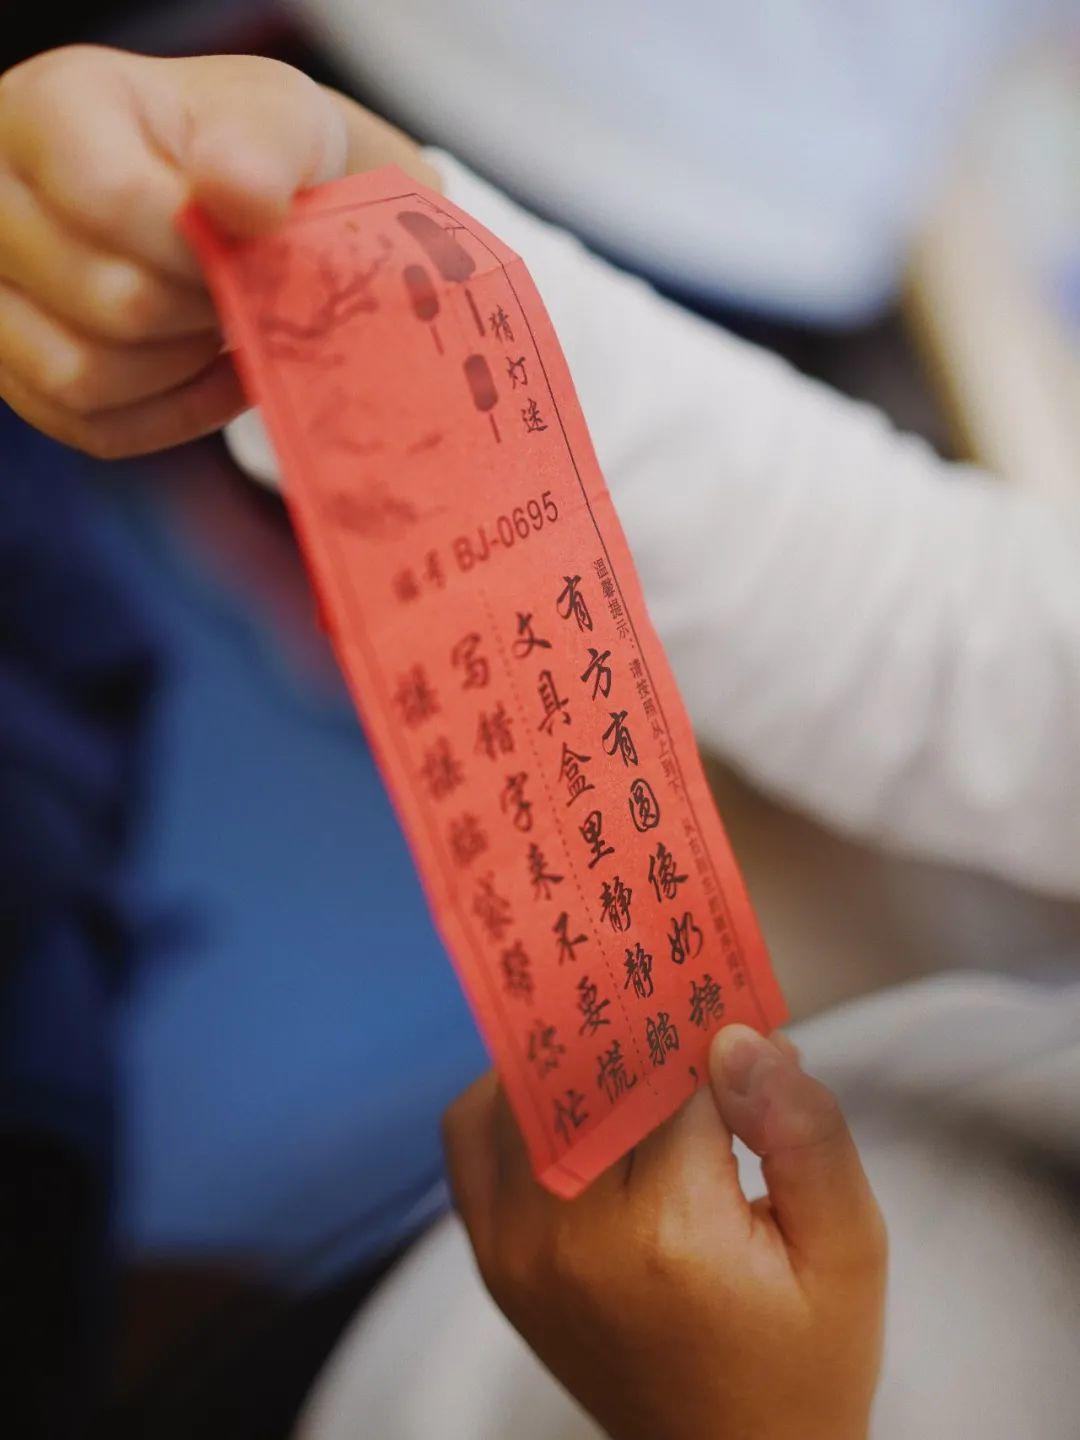 猜灯迷
编号 BJ-0695
温馨提示：请按照从上到下、从右到左
有方有圆像奶糖，
文具盒里静静躺
写错字来不要慌
擦擦
你忙